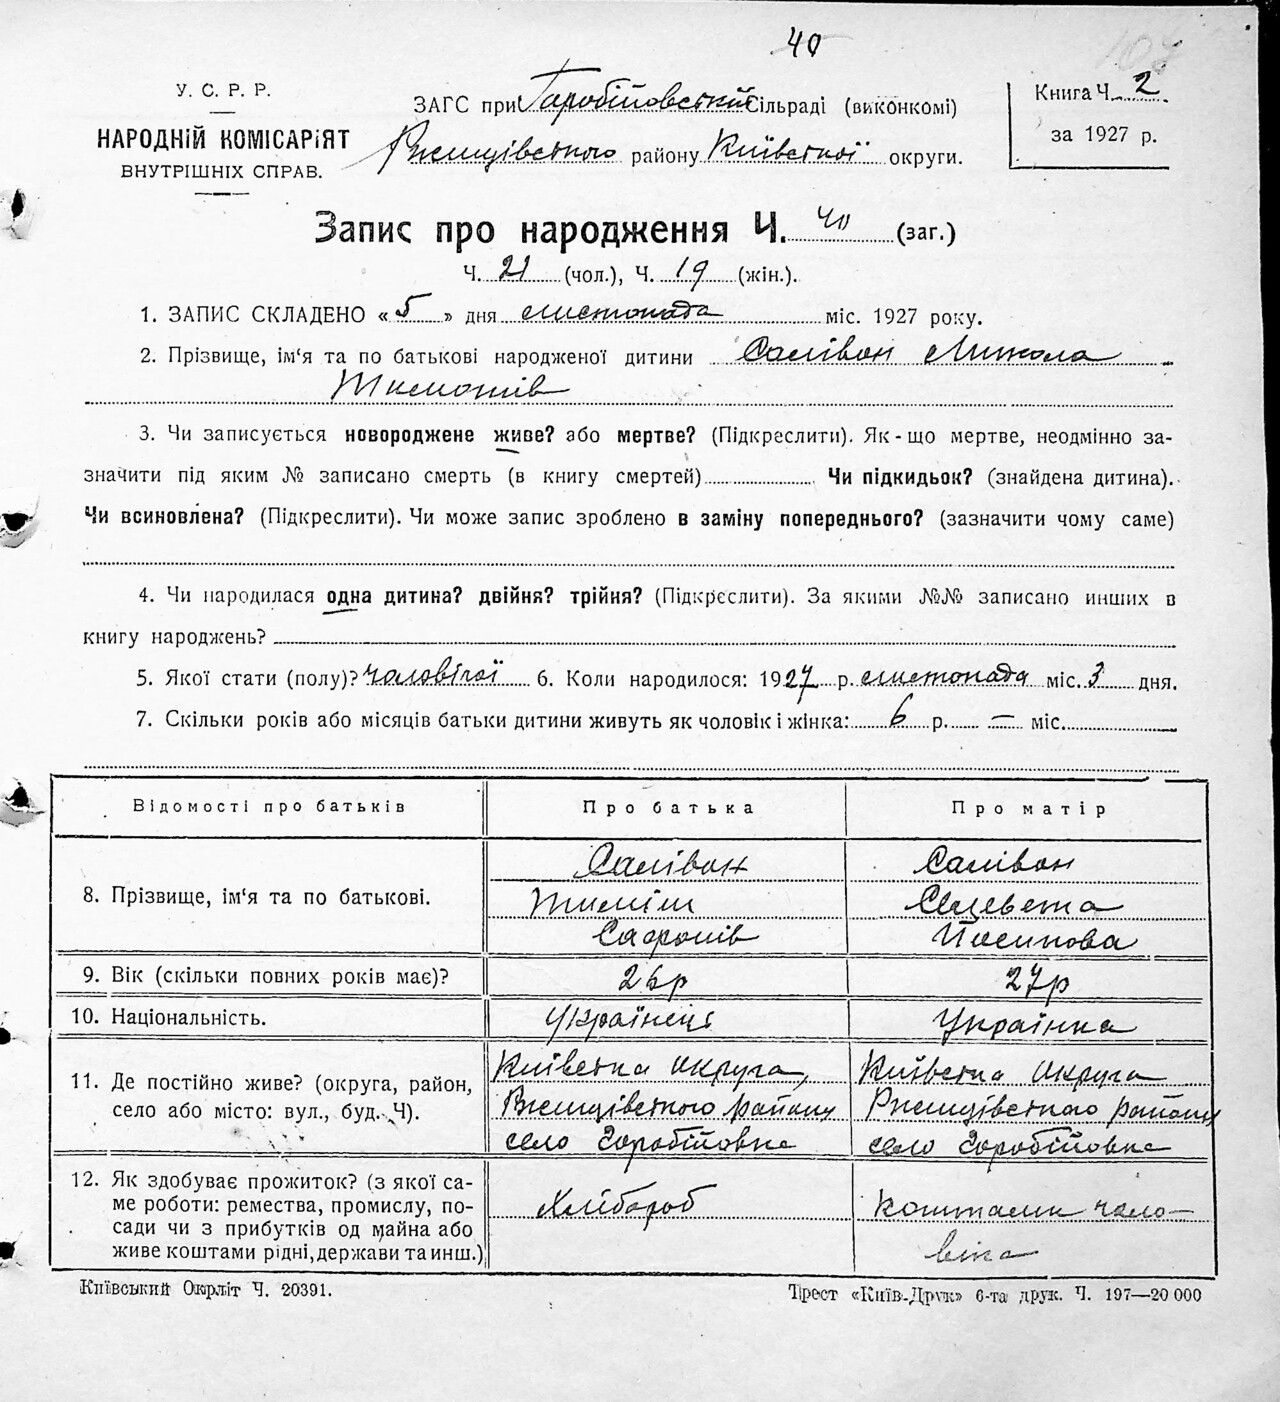 40
107
У. С. Р. Р.
НАРОДНІЙ КОМІСАРІЯТ
ВНУТРІШНІХ СПРАВ.
ЗАГС при Горобіївській Сільраді (виконкомі)
Ржищівського району Київської округи.
Книга Ч. 2
за 1927 р.
Запис про народження Ч. 40 (заг.)
Ч. 21 (чол.), Ч. 19 (жін.).
1. ЗАПИС СКЛАДЕНО «5» дня листопада міс. 1927 року.
2. Прізвище, ім‘я та по батькові народженої дитини Салівон Микола
Тимошів
3. Чи записується новороджене живе? або мертве? (Підкреслити). Як-що мертве, неодмінно за-
значити під яким № записано смерть (в книгу смертей) Чи підкидьок? (знайдена дитина).
Чи всиновлена? (Підкреслити). Чи може запис зроблено в заміну попереднього? (зазначити чому саме)
4. Чи народилася одна дитина? двійня? трійня? (Підкреслити). За якими №№ записано инших в
книгу народжень?
5. Якої стати (полу)? чоловічої 6. Коли народилося: 1927 р. листопада міс. 3 дня.
7. Скільки років або місяців батьки дитини живуть як чоловік і жінка: 6 р. — міс.
Відомості про батьків Про батька Про матір
8. Прізвище, ім‘я та по батькові.
Салівон
Тиміш
Сафронів
Салівон
Єлизевета
Йосипова
9. Вік (скільки повних років має)? 26р 27р
10. Національність. Українець Українка
11. Де постійно живе? (округа, район,
село або місто: вул., буд. Ч).
Київська округа,
Ржищівського району
село Горобіївка
Київська округа
Ржищівського району
село Горобіївка
12. Як здобуває прожиток? (з якої са-
ме роботи: ремества, промислу, по-
сади чи з прибутків од майна або
живе коштами рідні, держави та инш.)
Хлібороб
коштами чоло-
віка
Київський Окрліт Ч. 20391.
Трест «Київ-Друк» 6-та друк. Ч. 197—20 000